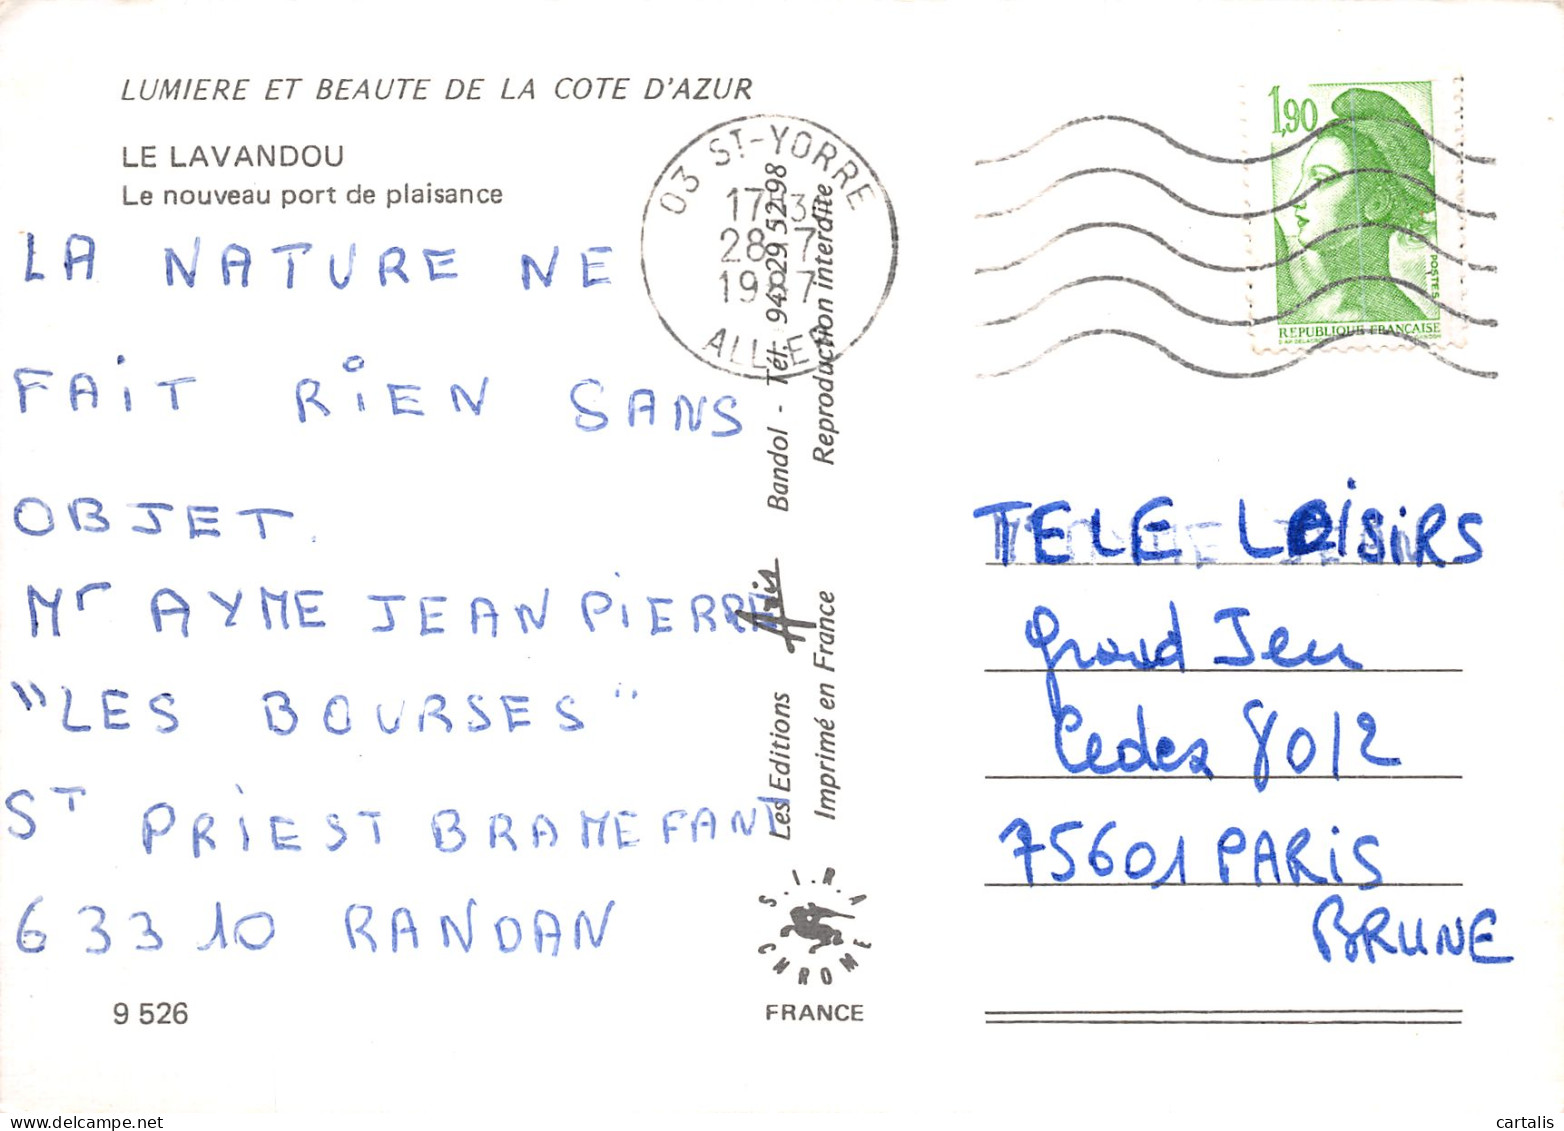 LUMIERE ET BEAUTE DE LA COTE D'AZUR
LE LAVANDOU
Le nouveau port de plaisance
LA NATURE NE
FAiT RiEN SANS
OBJET.
Mr AYME JEAN PiERRE
"LES BOURSES"
ST PRiEST BRAMEFANT
63310 RANDAN
9 526
03 ST-YORRE
28 7
ALLIER
Les Editions Aris Bandol - Tél. 94 29 52 98
Imprimé en France Reproduction interdite
S.I.R.A
CHROME
FRANCE
1,90
POSTES
REPUBLIQUE FRANÇAISE
TELE LOiSiRS
Grand Jeu
Cedex 8012
75601 PARiS
BRUNE
cartalis